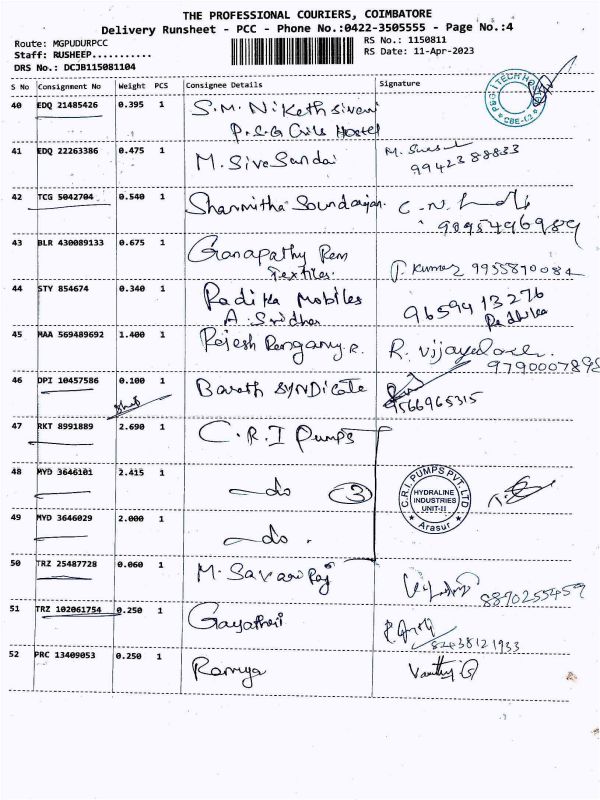 THE PROFESSIONAL COURIERS, COIMBATORE
Delivery Runsheet - PCC - Phone No.:0422-3505555 - Page No.:4
Route: MGPUDURPCC
RS No.: 1150811
Staff: RUSHEEP...........
RS Date: 11-Apr-2023
DRS No.: DCJB115081104
S No Consignment No Weight PCS Consignee Details Signature
40 EDQ 21485426 0.395 1 S.M. Nikethsivani
P.S.G Civil Hostel
PSG iTECH
CBE-62
41 EDQ 22263386 0.475 1 M. Siva Sundai M.
9942388833
42 TCG 5042704 0.540 1 Sharmitha Soundarajan. C.N.
9895496989
43 BLR 430089133 0.675 1 Ganapathy Ram
Textiles. J. Kumar 9955870084
44 STY 854674 0.340 1 Radika Mobiles 9659413276
A. Sridhar Radhika
45 MAA 569489692 1.400 1 Rajesh Rangany.R. R.
9790007898
46 DPI 10457586 0.100 1 Barath SYNDicate
9566965315
47 RKT 8991889 2.690 1 C.R.I Pumps
48 MYD 3646101 2.415 1 do 3
C.R.I. PUMPS PVT. LTD
HYDRALINE
INDUSTRIES
UNIT-II
Arasur
49 MYD 3646029 2.000 1 do.
50 TRZ 25487728 0.060 1 M. Savari Raj 8870255459
51 TRZ 102061754 0.250 1 Gayathri
82438121933
52 PRC 13409053 0.250 1 Ramya